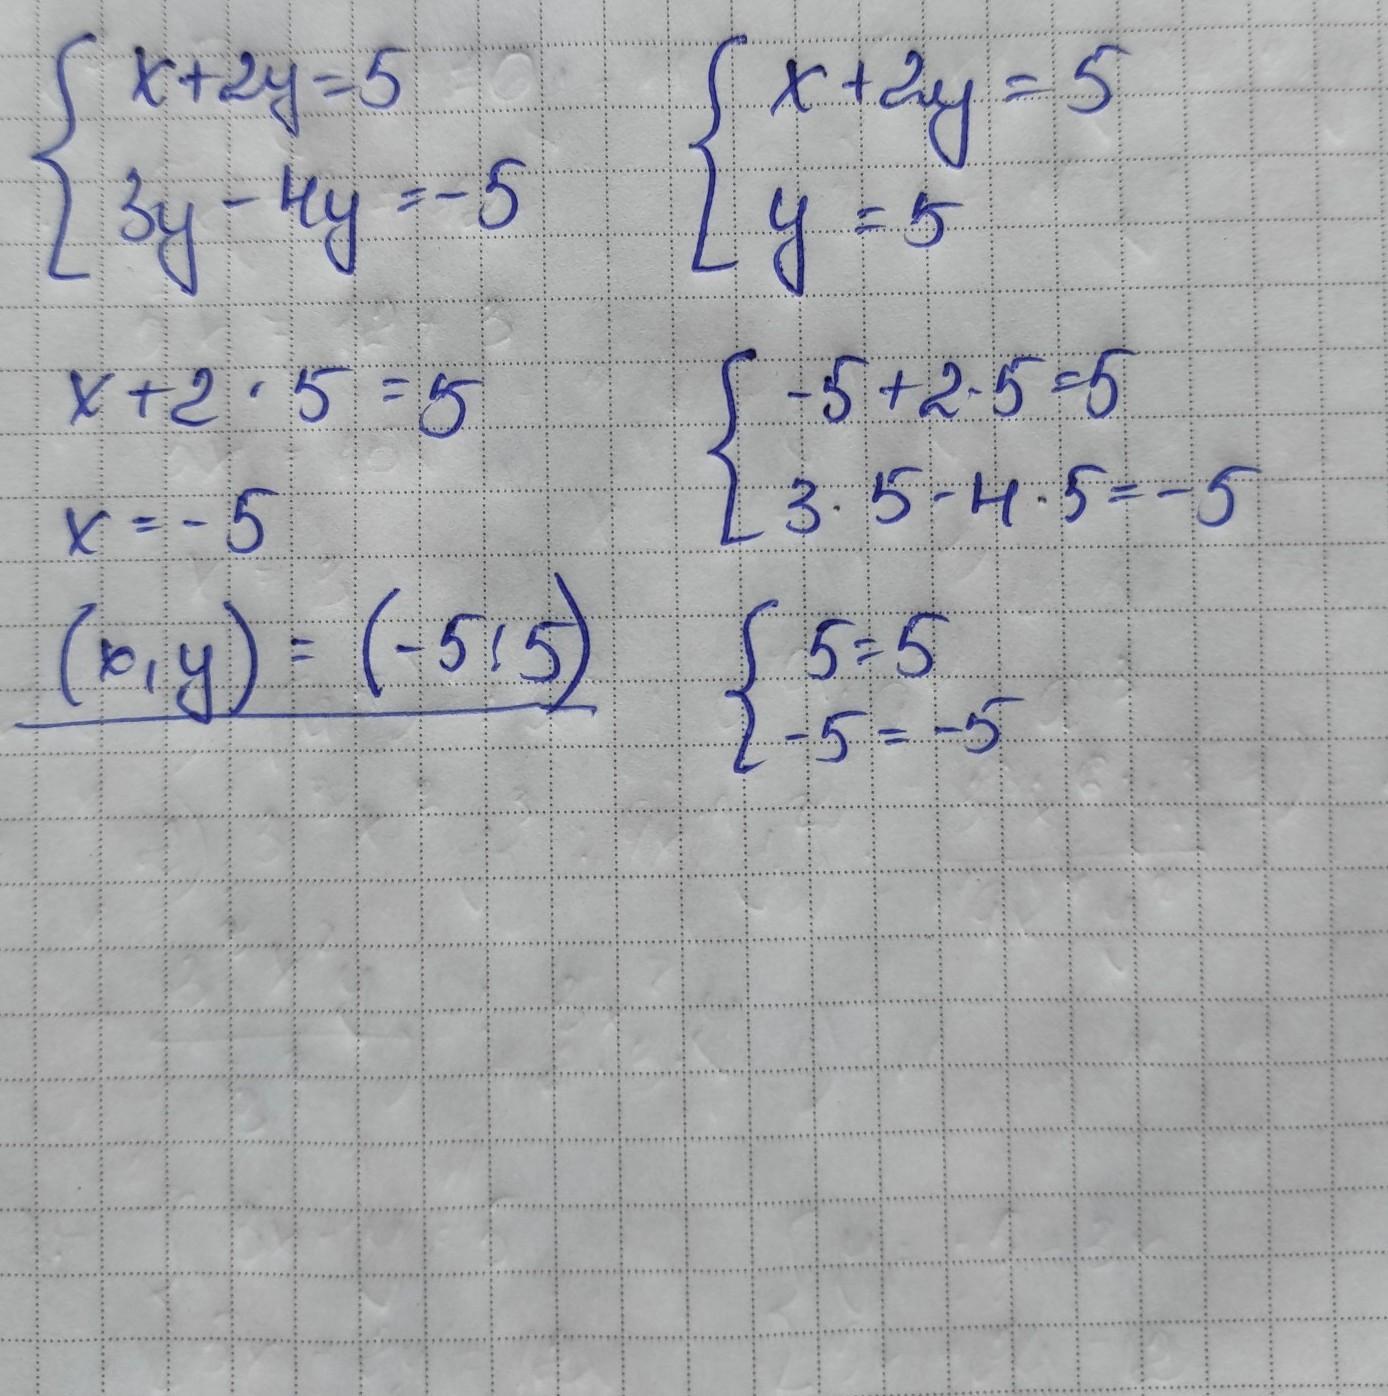 x+2y=5
3y-4y=-5
x+2y=5
y=5
x+2·5=5
x=-5
(x,y)=(-5;5)
-5+2·5=5
3·5-4·5=-5
5=5
-5=-5